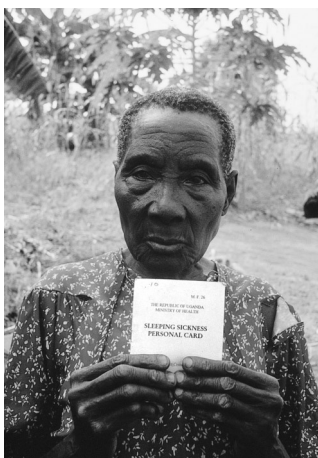 M F 36
THE REPUBLIC OF UGANDA
MINISTRY OF HEALTH
SLEEPING SICKNESS
PERSONAL CARD